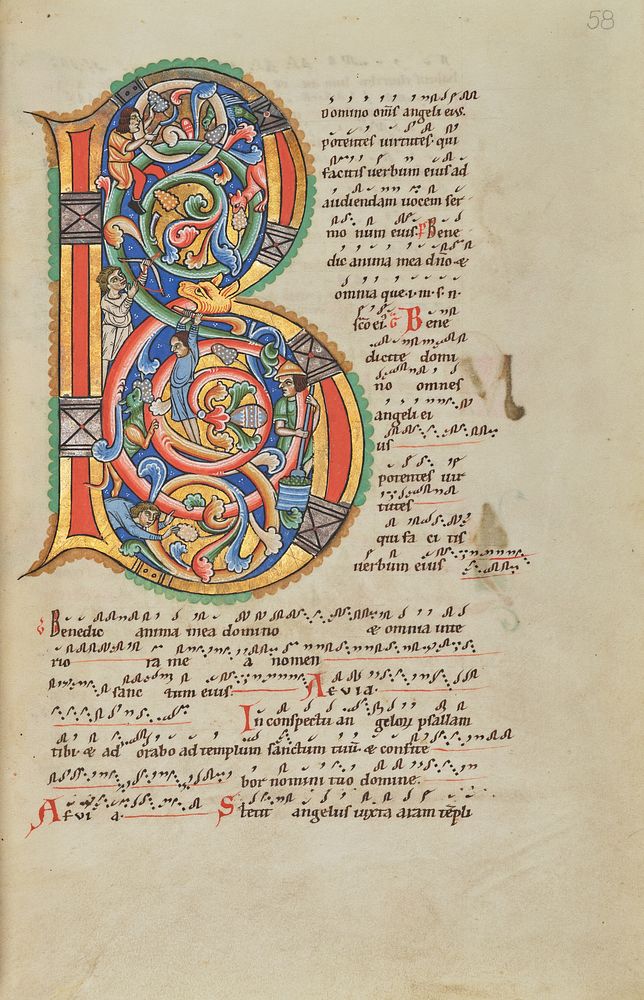 58
B
Domino om̄s angeli eius.
potentes uirtutes. qui
facitis uerbum eius ad
audiendam uocem ser
mo num eius. P Bene
dic anima mea dn̄o &
omnia que. i. m. s. n.
sc̄o ei'. G Bene
dicite domi
no omnes
angeli ei
us
potentes uir
tutes
qui fa ci tis
uerbum eius
G Benedic anima mea domino & omnia inte
rio ra me a nomen
sanc tum eius. Aeuia.
In conspectu an gelorꝝ psallam
tibi & ad orabo ad templum sanctum tuū & confite
bor nomini tuo domine.
Aeui a. Stetit angelus iuxta aram tēpli